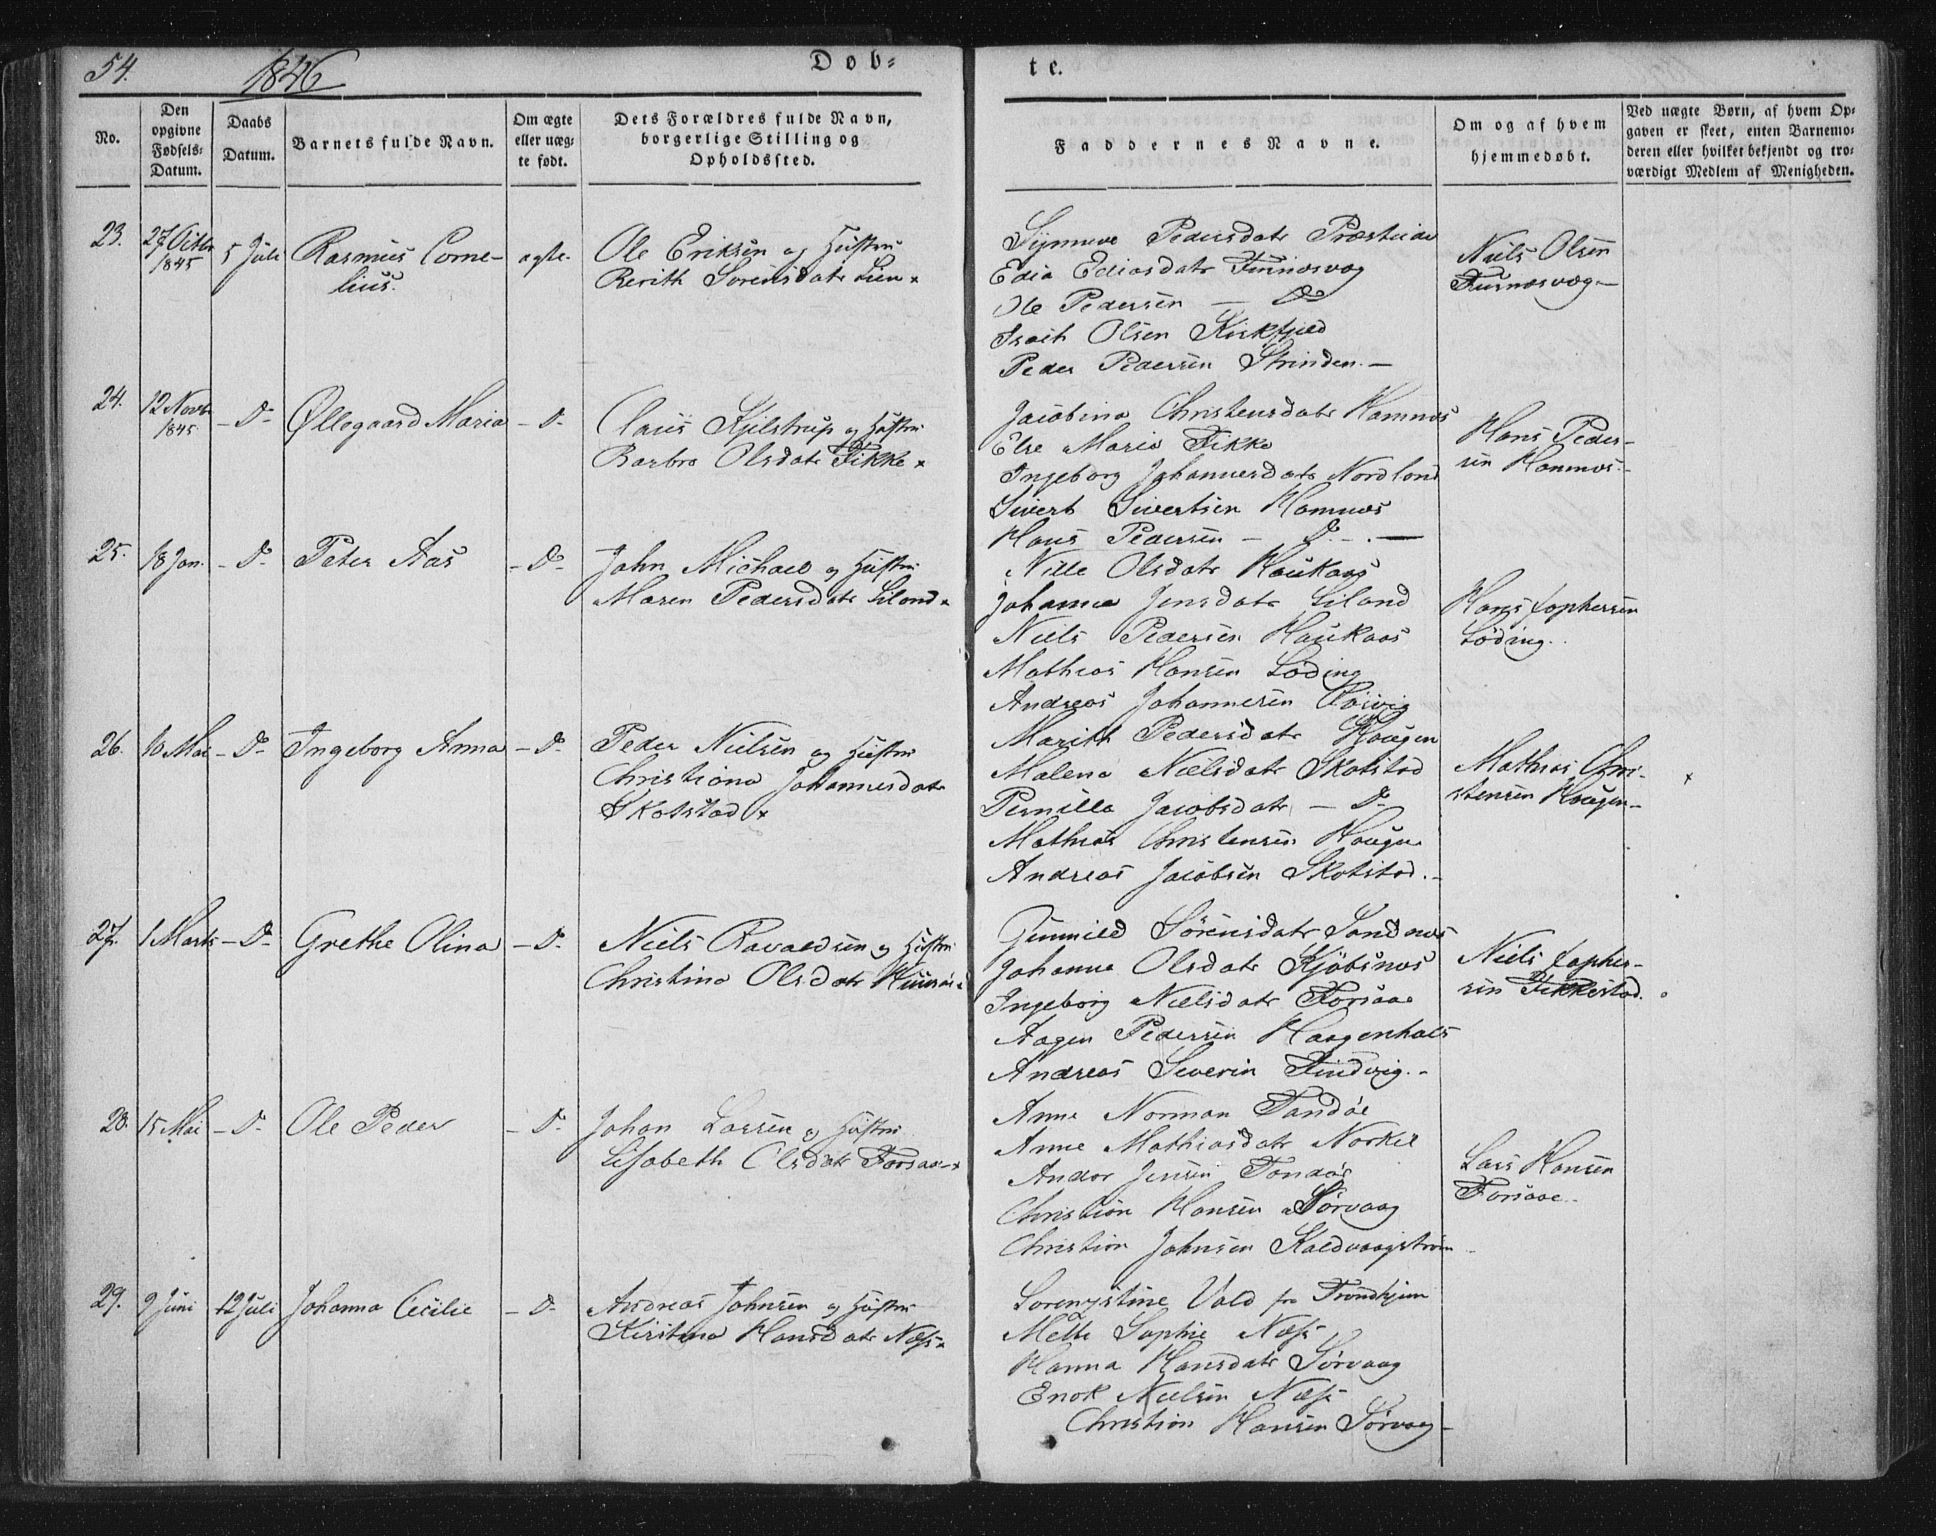 54. 1846 Dob-
te.
No.
Den opgivne Fødsels-Datum.
Daabs Datum.
Barnets fulde Navn.
Om ægte eller uæg-te født.
Dets Forældres fulde Navn, borgerlige Stilling og Opholdssted.
Faddernes Navne.
Om og af hvem hjemmedøbt.
Ved uægte Børn, af hvem Op-gaven er skeet, enten Barnemo-deren eller hvilket bekjendt og tro-værdigt Medlem af Menigheden.
23. 27 Octbr 1845 5 Juli Rasmus Corne-
lius.
ægte-
Ole Eriksen og Hustru
Berith Sørensdatr Lien x
Synneve Pedersdatr
Edia Ediasdatr Furnæsvag
Ole Pedersen — Do
Isach Olsen Kirkfjeld
Peder Pedersen Strinden. —
Niels Olsen
Furnæsvag —
24. 12 Novb. 1845. — Do — Øllegaard Maria — Do
Claus Kjilstrup og Hustru
Barbro Olsdatr Fikke x
Jacobina Christensdatr Hamnæs
Else Maria Fikke
Ingeborg Johannesdatr Nordland
Sivert Sivertsen Hamnæs
Hans Pedersen — Do —
Hans Peder-
sen Hamnæs. —
25. 18 Jan. — Do Peter Aas — Do —
John Michael og Hustru
Maren Pedersdatr Liland x
Nille Olsdatr Haukaas
Johanna Jensdatr Liland
Niels Pedersen Haukaas
Mathias Hansen Løding
Andreas Johannesen
Hans Tophersen
Løding.
26. 10 Mai — Do — Ingeborg Anna — Do —
Peder Nielsen og Hustru
Christiana Johannesdatr
Skotstad x
Marith Pedersdatr Haugen
Malena Nielsdatr Skotstad
Pernilla Jacobsdatr — Do
Mathias Christensen Haugen
Andreas Jacobsen Skotstad. —
Mathias Chri-
stensen Haugen — x
27. 1 Marts — Do — Grethe Olina — Do —
Niels Ravaldsen og Hustru
Christina Olsdatr
Gunnild Sørensdatr Sandnæs
Johanna Olsdatr Kjøbsnæs
Ingeborg Nielsdatr Forsaae
Aagen Pedersen Haagenhals
Andreas Severin Findvig. —
Niels Topher-
sen Fikkestad.
28. 15 Mai — Do Ole Peder — Do
Johan Larsen og Hustru
Lisabeth Olsdatr Forsaae — x
Anne Norman Tandøe
Anne Mathiasdatr Norkil
Andor Jensen Tandøe
Christian Hansen Sørvaag
Christian Johnsen Kaldvaagstrøm —
Lars Hansen
Forsaae. —
29. 9 Juni 12 Juli Johanna Cecilie — Do
Andreas Johnsen og Hustru
Kiristina Hansdatr Næss x
Sorenystine Vold fra Trondhjem
Mette Sophie Næss
Hanna Hansdatr Sørvaag
Enok Nielsen Næss
Christian Hansen Sørvaag —